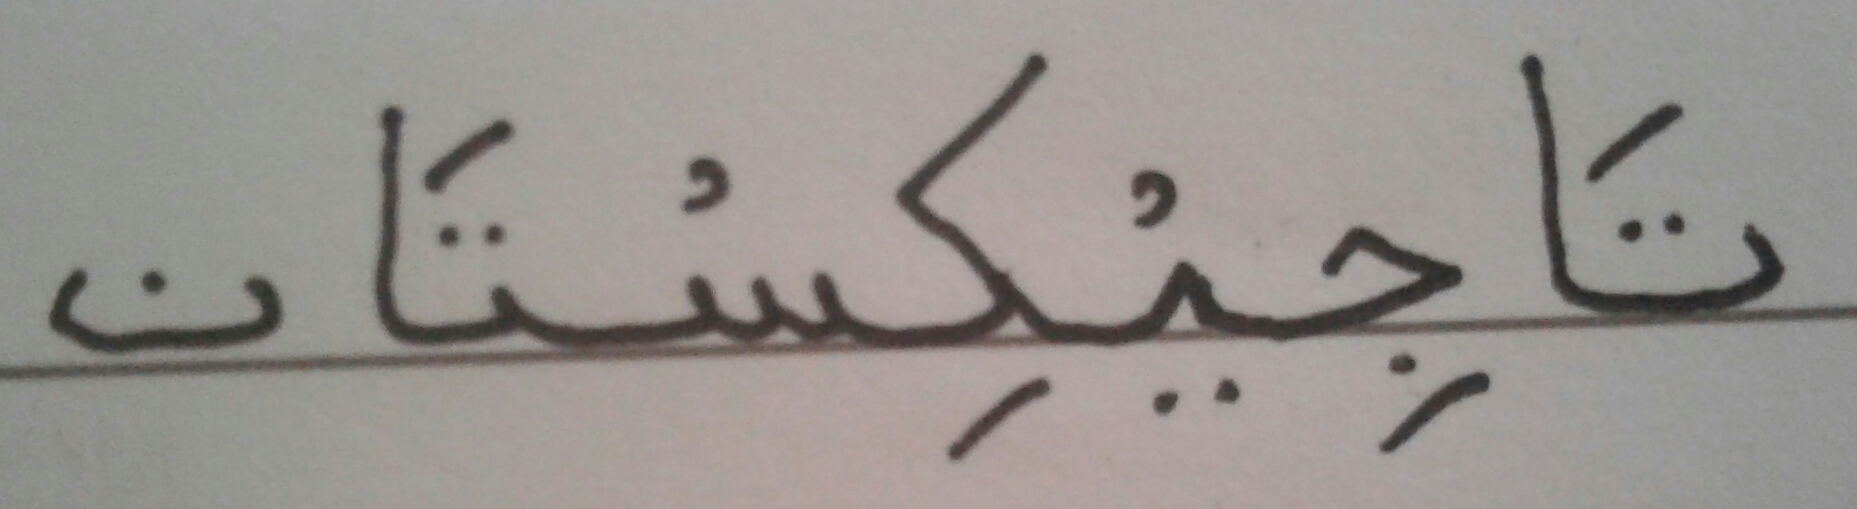 تَاجِيْكِسْتَان